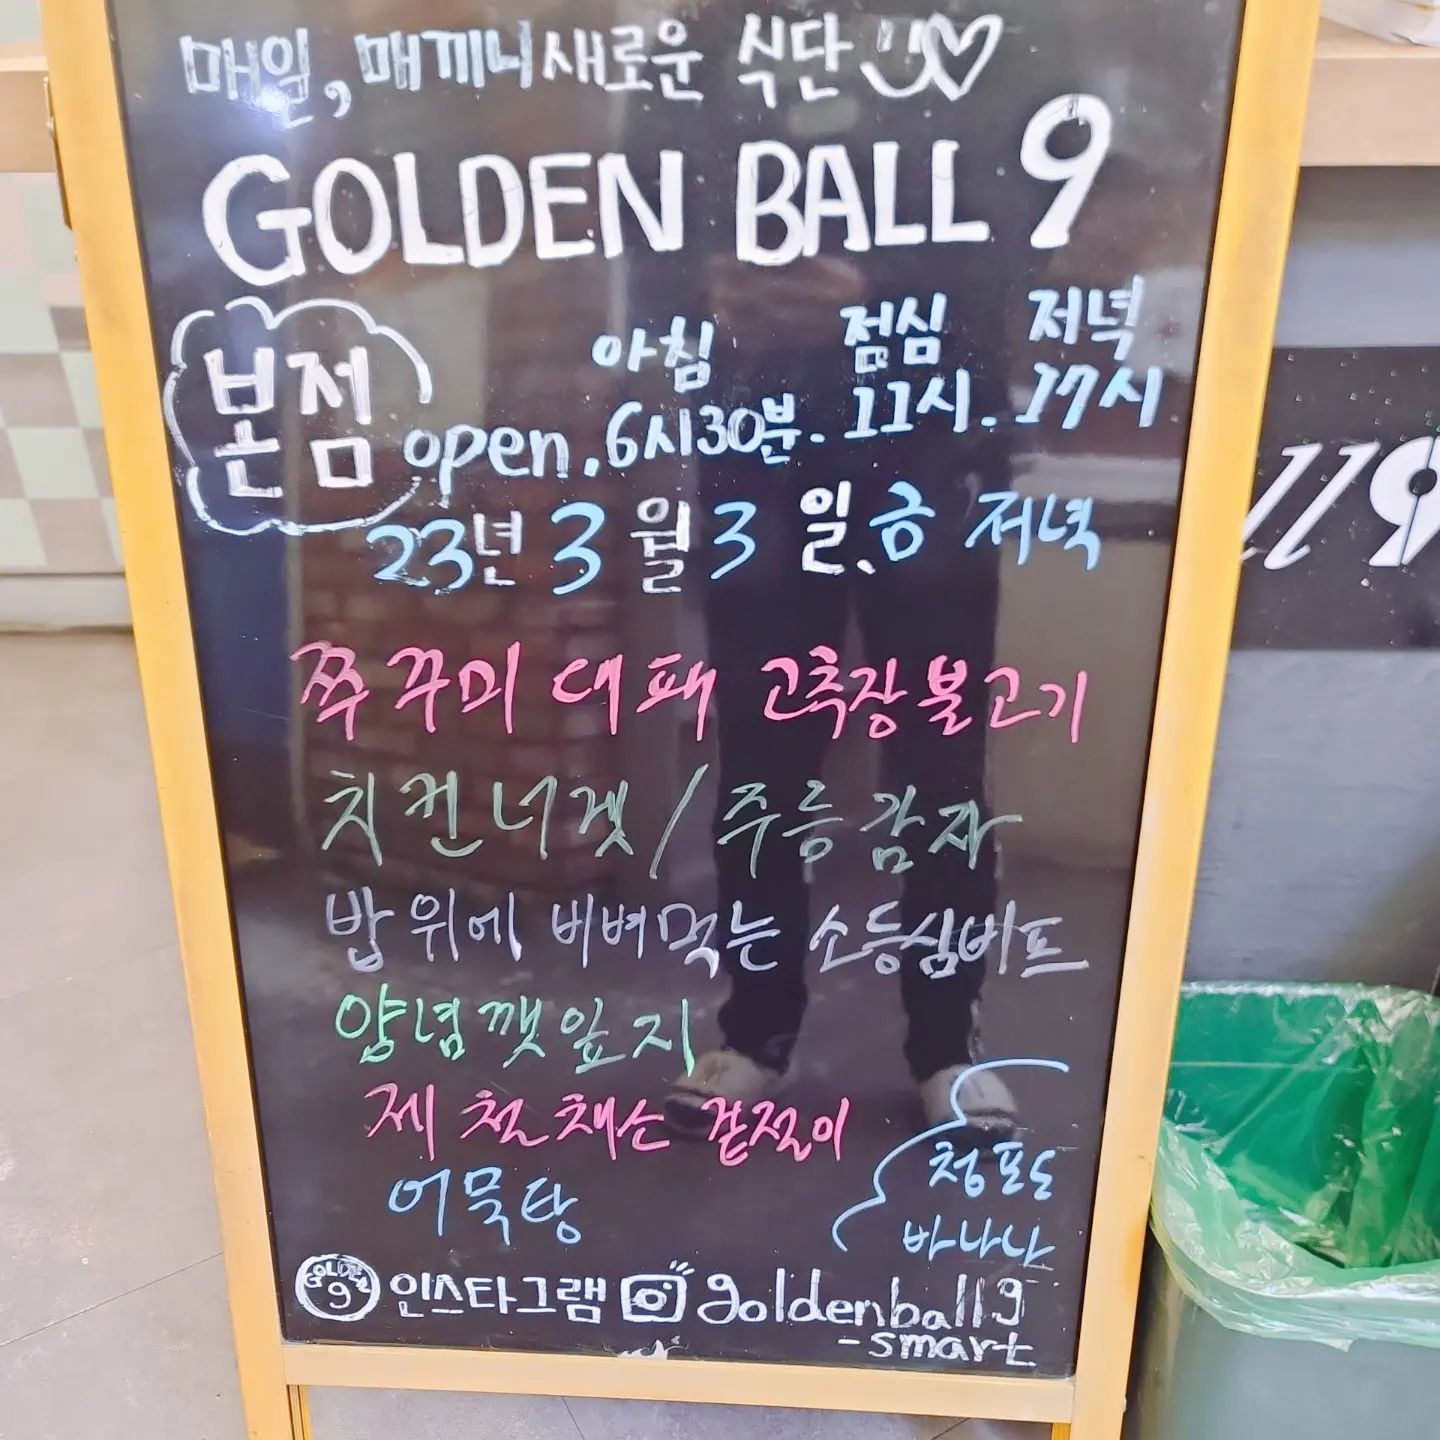 매일, 매끼니 새로운 식단
GOLDEN BALL 9
본점
아침 점심 저녁
open. 6시30분. 11시. 17시
23년 3월 3일. 금 저녁
쭈꾸미 대패 고추장불고기
치킨너겟 / 주릉감자
밥 위에 비벼먹는 소등심비프
양념깻잎지
제철채소 겉절이
어묵탕
청포도
바나나
GOLDEN 9 인스타그램 goldenball9
-smart
ll9